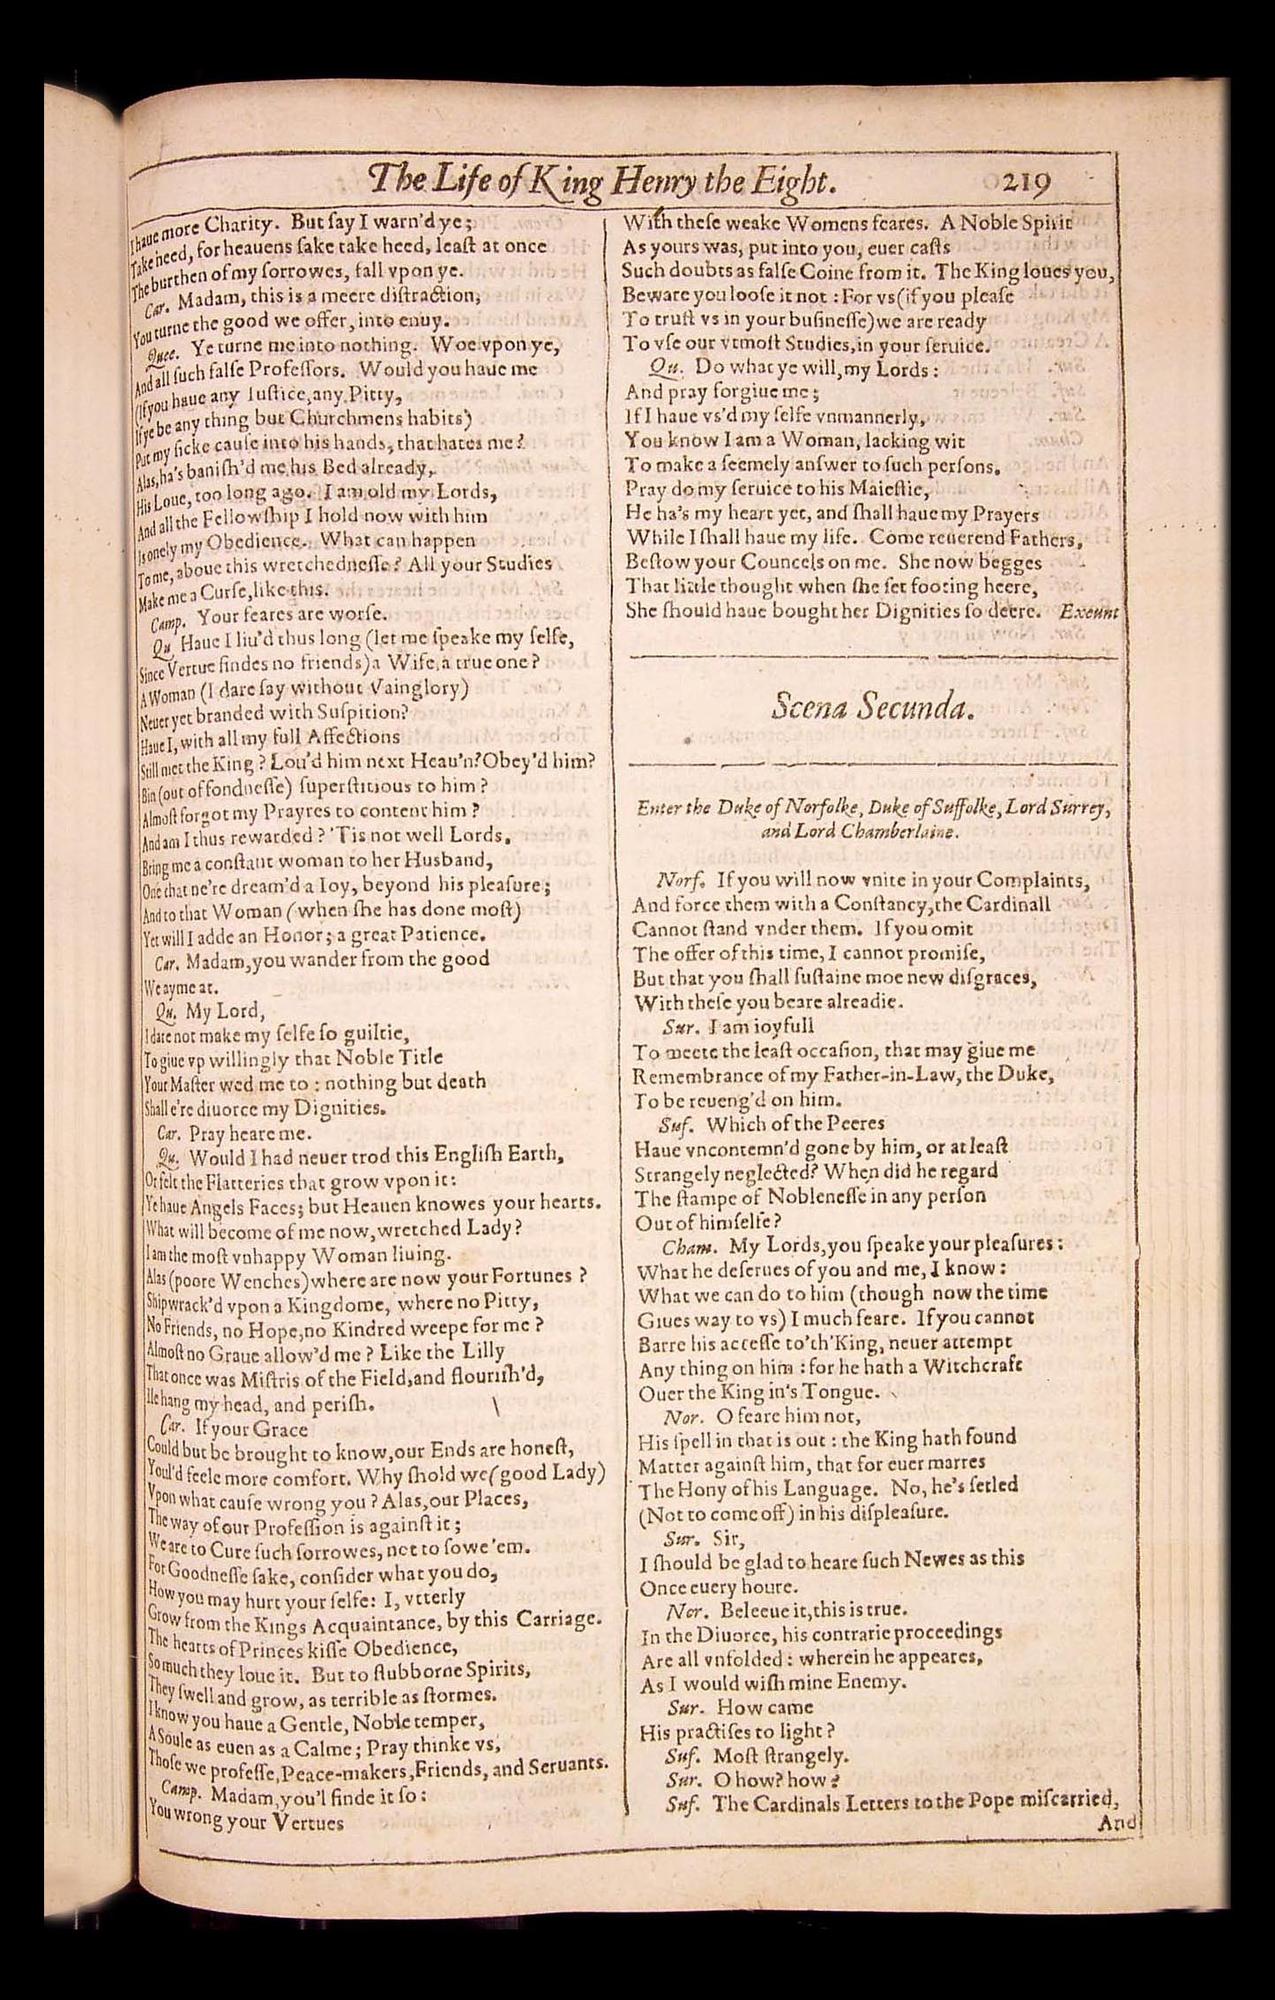 The Life of King Henry the Eight. 219
I haue more Charity. But ſay I warn'd ye;
Take heed, for heauens ſake take heed, leaſt at once
The burthen of my ſorrowes, fall vpon ye.
Car. Madam, this is a meere diſtraction,
You turne the good we offer, into enuy.
Quee. Ye turne me into nothing. Woe vpon ye,
And all ſuch falſe Profeſſors. Would you haue me
(If you haue any Iuſtice, any Pitty,
If ye be any thing but Churchmens habits)
Put my ſicke cauſe into his hands, that hates me?
Alas, ha's baniſh'd me his Bed already,
His Loue, too long ago. I am old my Lords,
And all the Fellowſhip I hold now with him
Is onely my Obedience. What can happen
To me, aboue this wretchedneſſe? All your Studies
Make me a Curſe, like this.
Camp. Your feares are worſe.
Qu Haue I liu'd thus long (let me ſpeake my ſelfe,
Since Vertue findes no friends) a Wife, a true one?
A Woman (I dare ſay without Vainglory)
Neuer yet branded with Suſpition?
Haue I, with all my full Affections
Still met the King? Lou'd him next Heau'n? Obey'd him?
Bin (out of fondneſſe) ſuperſtitious to him?
Almoſt forgot my Prayres to content him?
And am I thus rewarded? 'Tis not well Lords.
Bring me a conſtant woman to her Husband,
One that ne're dream'd a Ioy, beyond his pleaſure;
And to that Woman (when ſhe has done moſt)
Yet will I adde an Honor; a great Patience.
Car. Madam, you wander from the good
We ayme at.
Qu. My Lord,
I dare not make my ſelfe ſo guiltie,
To giue vp willingly that Noble Title
Your Maſter wed me to: nothing but death
Shall e're diuorce my Dignities.
Car. Pray heare me.
Qu. Would I had neuer trod this Engliſh Earth,
Or felt the Flatteries that grow vpon it:
Ye haue Angels Faces; but Heauen knowes your hearts.
What will become of me now, wretched Lady?
I am the moſt vnhappy Woman liuing.
Alas (poore Wenches) where are now your Fortunes?
Shipwrack'd vpon a Kingdome, where no Pitty,
No Friends, no Hope, no Kindred weepe for me?
Almoſt no Graue allow'd me? Like the Lilly
That once was Miſtris of the Field, and flouriſh'd,
Ile hang my head, and periſh.
Car. If your Grace
Could but be brought to know, our Ends are honeſt,
Youl'd feele more comfort. Why ſhold we (good Lady)
Vpon what cauſe wrong you? Alas, our Places,
The way of our Profeſſion is againſt it;
We are to Cure ſuch ſorrowes, not to ſowe 'em.
For Goodneſſe ſake, conſider what you do,
How you may hurt your ſelfe: I, vtterly
Grow from the Kings Acquaintance, by this Carriage.
The hearts of Princes kiſſe Obedience,
So much they loue it. But to ſtubborne Spirits,
They ſwell and grow, as terrible as ſtormes.
I know you haue a Gentle, Noble temper,
A Soule as euen as a Calme; Pray thinke vs,
Thoſe we profeſſe, Peace-makers, Friends, and Seruants.
Camp. Madam, you'l finde it ſo:
You wrong your Vertues
With theſe weake Womens feares. A Noble Spirit
As yours was, put into you, euer caſts
Such doubts as falſe Coine from it. The King loues you,
Beware you looſe it not: For vs (if you pleaſe
To truſt vs in your buſineſſe) we are ready
To vſe our vtmoſt Studies, in your ſeruice.
Qu. Do what ye will, my Lords:
And pray forgiue me;
If I haue vs'd my ſelfe vnmannerly,
You know I am a Woman, lacking wit
To make a ſeemely anſwer to ſuch perſons.
Pray do my ſeruice to his Maieſtie,
He ha's my heart yet, and ſhall haue my Prayers
While I ſhall haue my life. Come reuerend Fathers,
Beſtow your Councels on me. She now begges
That little thought when ſhe ſet footing heere,
She ſhould haue bought her Dignities ſo deere. Exeunt
Scena Secunda.
Enter the Duke of Norfolke, Duke of Suffolke, Lord Surrey,
and Lord Chamberlaine.
Norf. If you will now vnite in your Complaints,
And force them with a Conſtancy, the Cardinall
Cannot ſtand vnder them. If you omit
The offer of this time, I cannot promiſe,
But that you ſhall ſuſtaine moe new diſgraces,
With theſe you beare alreadie.
Sur. I am ioyfull
To meete the leaſt occaſion, that may giue me
Remembrance of my Father-in-Law, the Duke,
To be reueng'd on him.
Suf. Which of the Peeres
Haue vncontemn'd gone by him, or at leaſt
Strangely neglected? When did he regard
The ſtampe of Nobleneſſe in any perſon
Out of himſelfe?
Cham. My Lords, you ſpeake your pleaſures:
What he deſerues of you and me, I know:
What we can do to him (though now the time
Giues way to vs) I much feare. If you cannot
Barre his acceſſe to'th'King, neuer attempt
Any thing on him: for he hath a Witchcraft
Ouer the King in's Tongue.
Nor. O feare him not,
His ſpell in that is out: the King hath found
Matter againſt him, that for euer marres
The Hony of his Language. No, he's ſetled
(Not to come off) in his diſpleaſure.
Sur. Sir,
I ſhould be glad to heare ſuch Newes as this
Once euery houre.
Nor. Beleeue it, this is true.
In the Diuorce, his contrarie proceedings
Are all vnfolded: wherein he appeares,
As I would wiſh mine Enemy.
Sur. How came
His practiſes to light?
Suf. Moſt ſtrangely.
Sur. O how? how?
Suf. The Cardinals Letters to the Pope miſcarried,
And